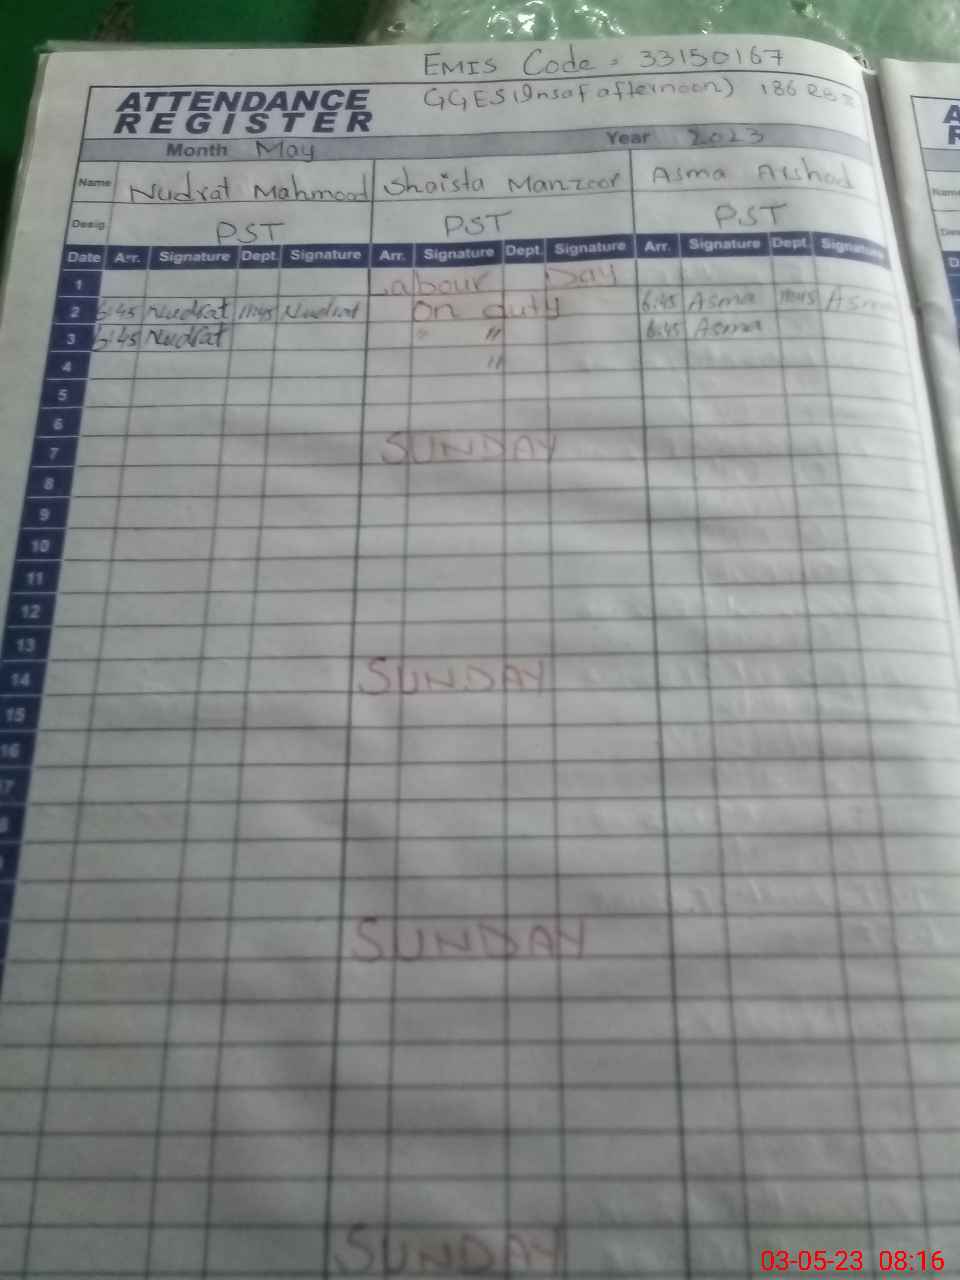 EMIS Code = 33150167
ATTENDANCE REGISTER
GGES (Insaf afternoon) 186
Month May Year 2023
Name Nudrat Mahmood Shaista Manzoor Asma Arshad
Desig. PST PST PST
Date Arr. Signature Dept. Signature Arr. Signature Dept. Signature Arr. Signature Dept. Signature
1 Labour Day
2 6:45 Nudrat 11:45 Nudrat On duty 6:45 Asma 11:45 Asma
3 6:45 Nudrat " " 6:45 Asma
4 "
5
6
7 SUNDAY
8
9
10
11
12
13
14 SUNDAY
15
16
SUNDAY
SUNDAY
03-05-23 08:16